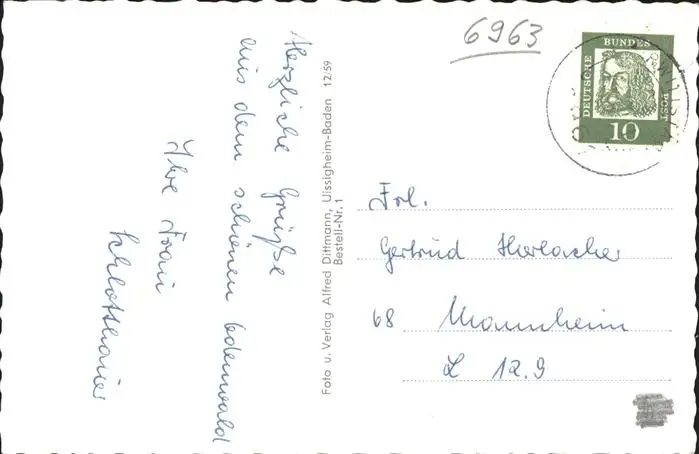 6963
DEUTSCHE
BUNDES
POST
10
Herzliche Grüße
aus dem schönen Odenwald
Ihre Frau
Foto u. Verlag Alfred Dittmann, Uissigheim-Baden 12/59
Bestell-Nr. 1
Frl.
Gertrud Herlacher
68 Mannheim
L 12.9